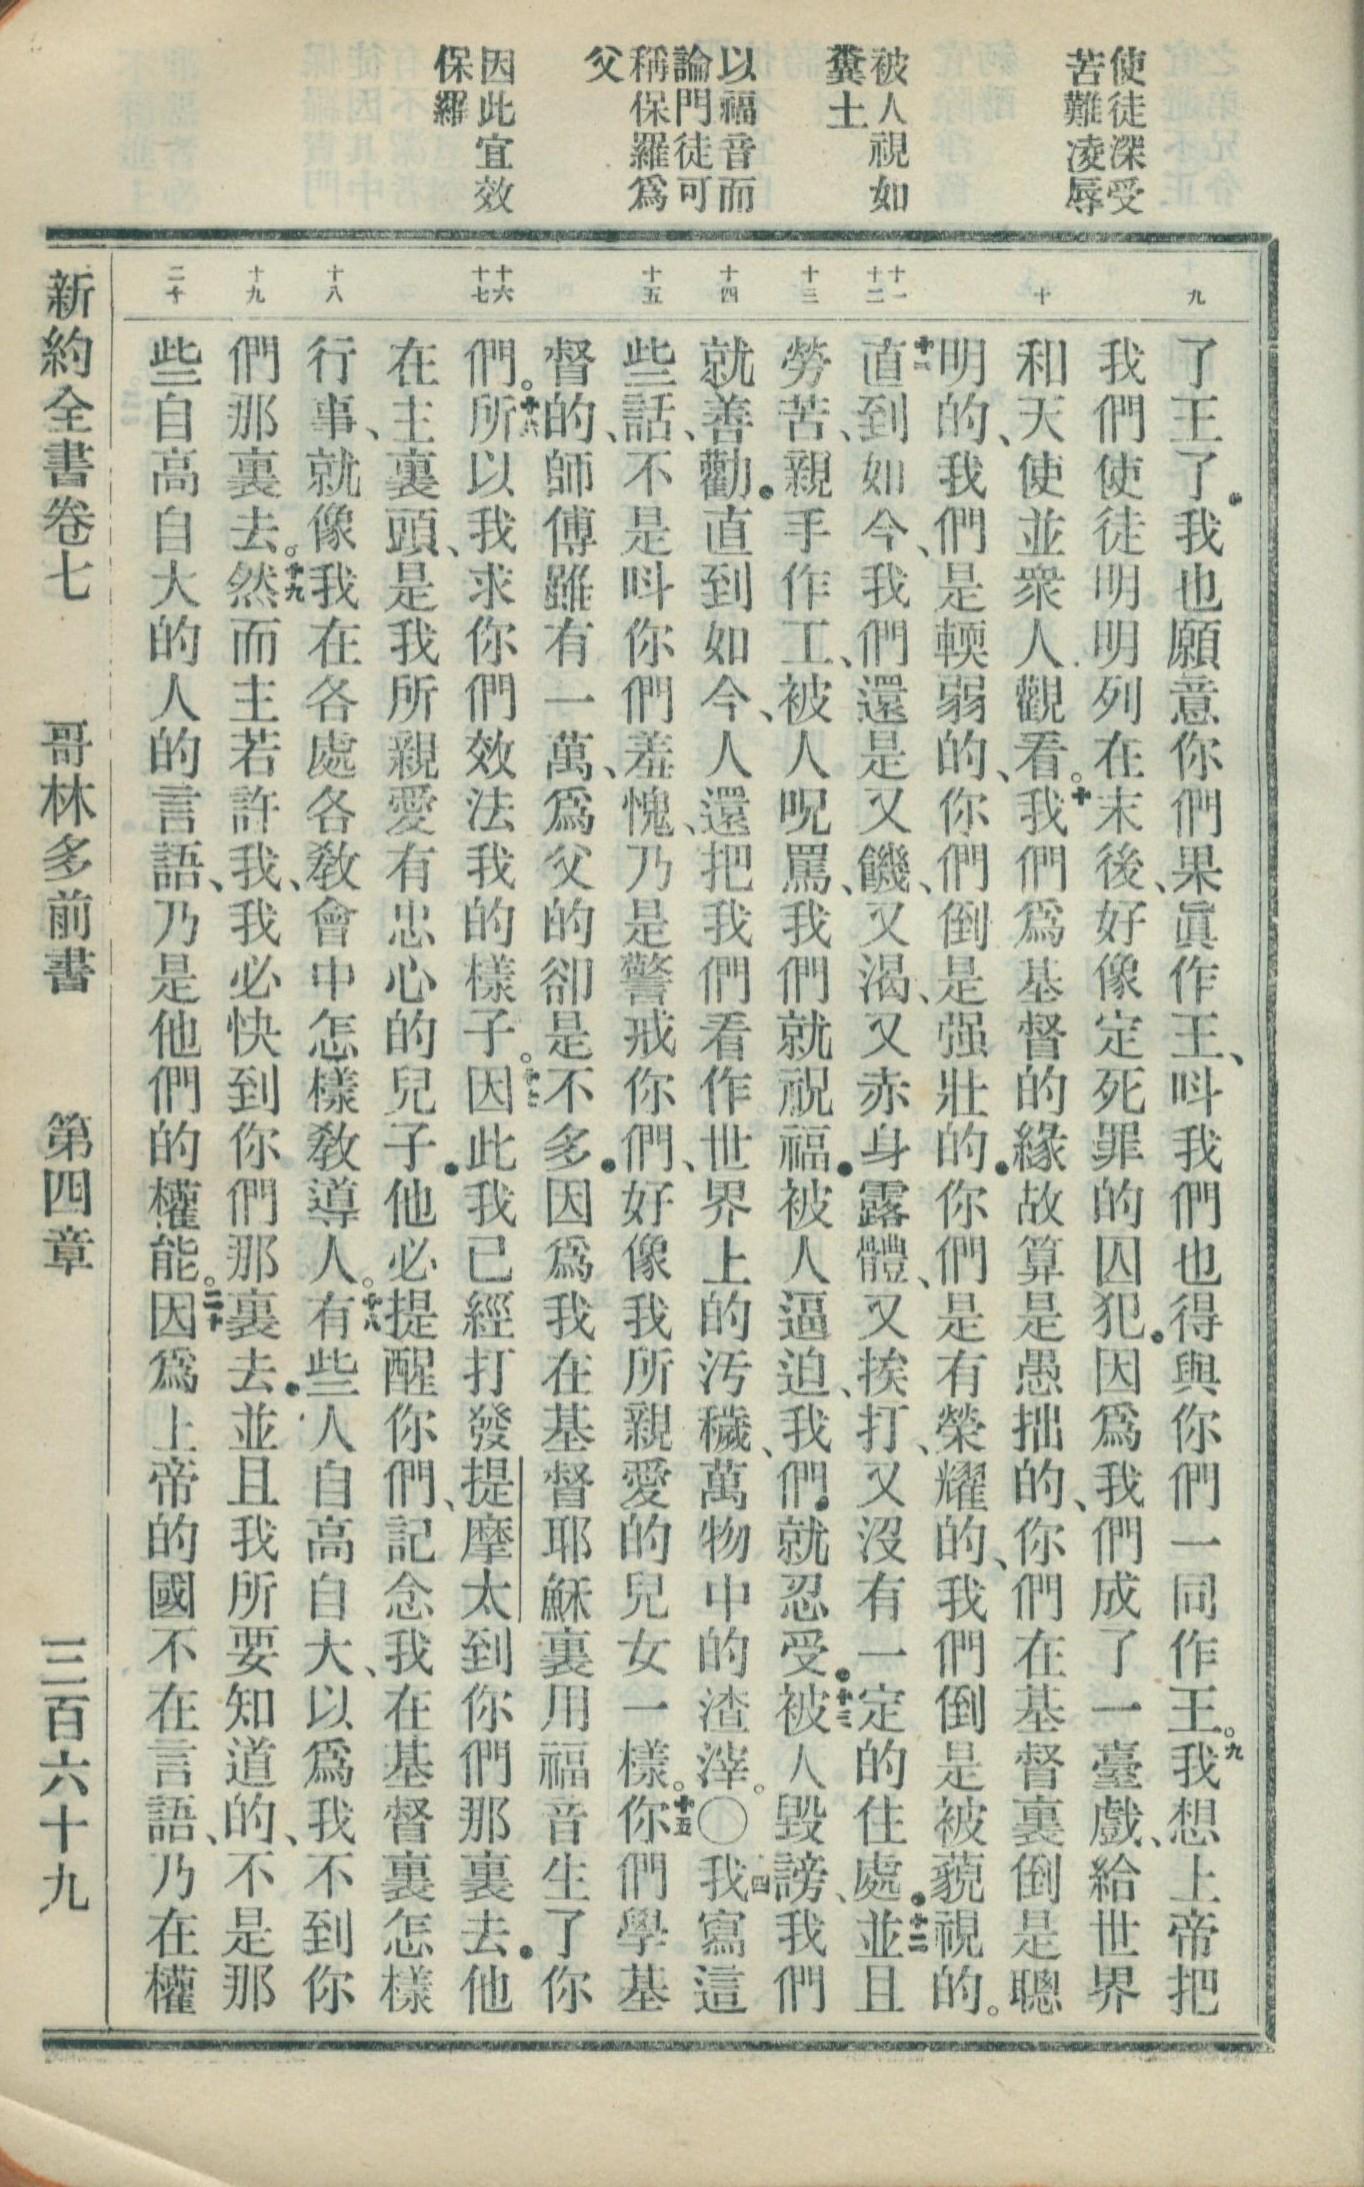 使徒深受
苦難凌辱
被人視如
糞土
以福音而
論門徒可
稱保羅爲
父
因此宜效
保羅
九
十
十一
十二
十三
十四
十五
十六
十七
十八
十九
二十
了王了．我也願意你們果眞作王、呌我們也得與你們一同作王。九我想上帝把
我們使徒明明列在末後、好像定死罪的囚犯．因爲我們成了一臺戲、給世界
和天使並衆人觀看。十我們爲基督的緣故算是愚拙的、你們在基督裏倒是聰
明的、我們是輭弱的、你們倒是强壯的．你們是有榮耀的、我們倒是被藐視的。
十一直到如今、我們還是又饑、又渴、又赤身露體、又挨打、又沒有一定的住處．十二並且
勞苦、親手作工、被人呪罵、我們就祝福．被人逼迫、我們就忍受．十三被人毀謗、我們
就善勸．直到如今、人還把我們看作世界上的汚穢、萬物中的渣滓。〇十四我寫這
些話、不是呌你們羞愧、乃是警戒你們、好像我所親愛的兒女一樣。十五你們學基
督的、師傅雖有一萬、爲父的卻是不多．因爲我在基督耶穌裏用福音生了你
們。十六所以我求你們效法我的樣子。十七因此我已經打發提摩太到你們那裏去．他
在主裏頭、是我所親愛有忠心的兒子．他必提醒你們、記念我在基督裏怎樣
行事、就像我在各處各教會中怎樣教導人。十八有些人自高自大、以爲我不到你
們那裏去。十九然而主若許我、我必快到你們那裏去．並且我所要知道的、不是那
些自高自大的人的言語、乃是他們的權能。二十因爲上帝的國不在言語、乃在權
新約全書卷七 哥林多前書 第四章 三百六十九